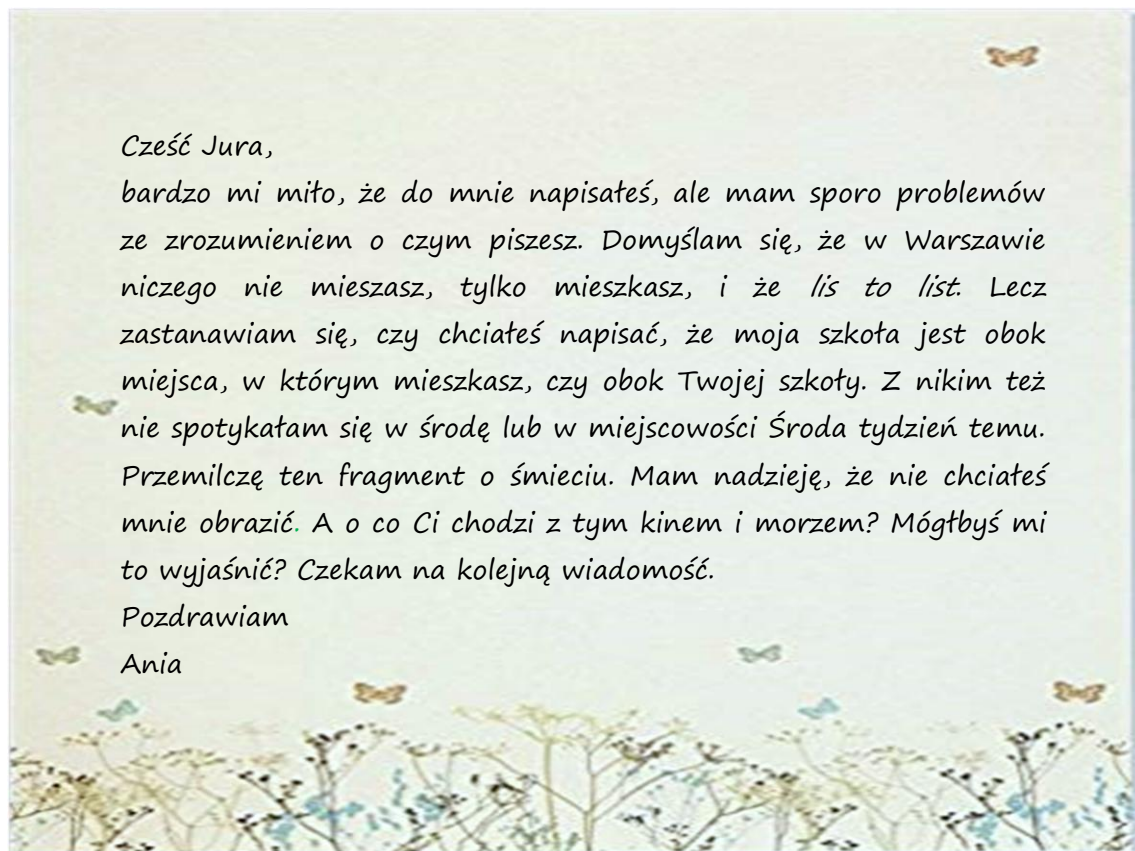 Cześć Jura,
bardzo mi miło, że do mnie napisałeś, ale mam sporo problemów
ze zrozumieniem o czym piszesz. Domyślam się, że w Warszawie
niczego nie mieszasz, tylko mieszkasz, i że lis to list. Lecz
zastanawiam się, czy chciałeś napisać, że moja szkoła jest obok
miejsca, w którym mieszkasz, czy obok Twojej szkoły. Z nikim też
nie spotykałam się w środę lub w miejscowości Środa tydzień temu.
Przemilczę ten fragment o śmieciu. Mam nadzieję, że nie chciałeś
mnie obrazić. A o co Ci chodzi z tym kinem i morzem? Mógłbyś mi
to wyjaśnić? Czekam na kolejną wiadomość.
Pozdrawiam
Ania